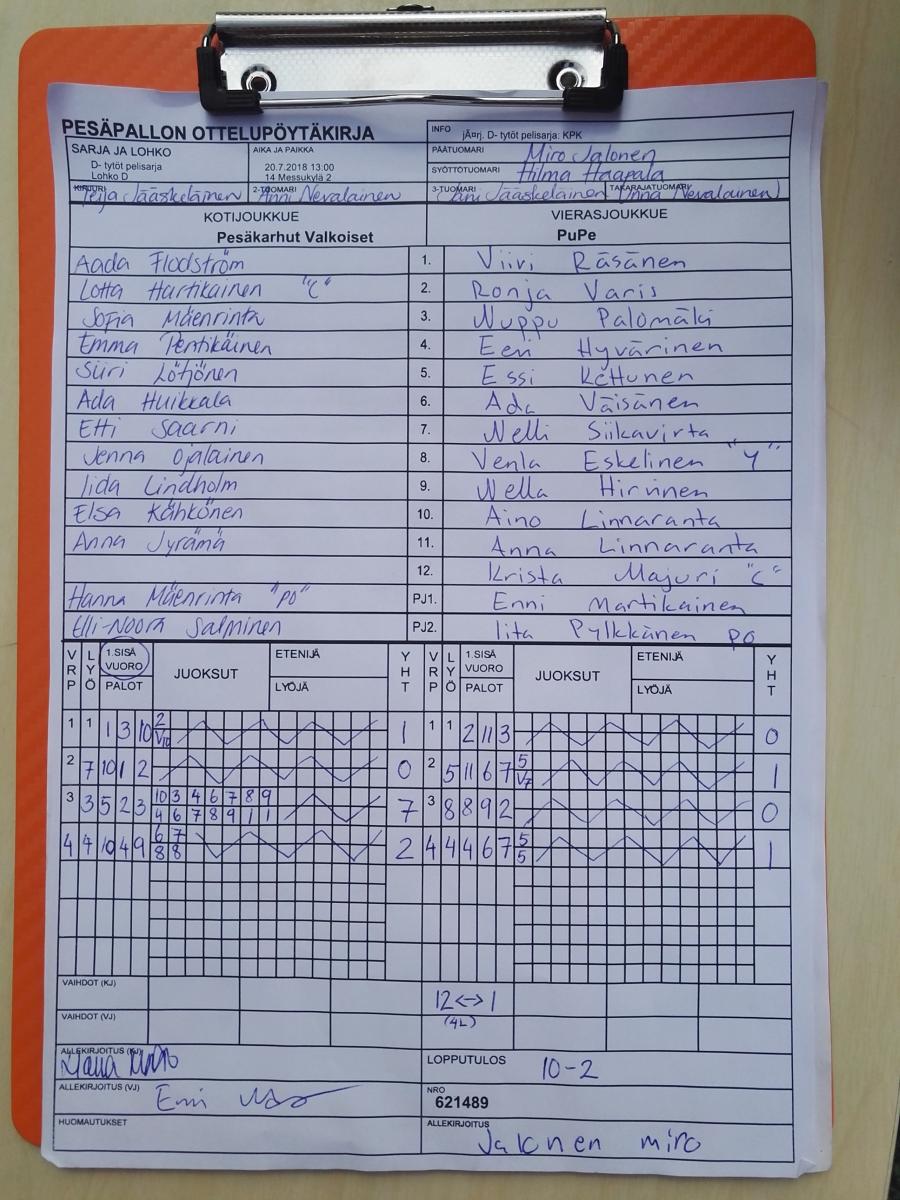 PESÄPALLON OTTELUPÖYTÄKIRJA
INFO jÃ¤rj. D- tytöt pelisarja: KPK
SARJA JA LOHKO
D- tytöt pelisarja
Lohko D
AIKA JA PAIKKA
20.7.2018 13:00
14 Messukylä 2
PÄÄTUOMARI Miro Jalonen
SYÖTTÖTUOMARI Hilma Haapala
KIRJURI Teija Jääskeläinen
2-TUOMARI Anni Nevalainen
3-TUOMARI Jääskeläinen
TAKARAJATUOMARI Nevalainen
KOTIJOUKKUE
Pesäkarhut Valkoiset
VIERASJOUKKUE
PuPe
Aada Flodström 1. Viivi Räsänen
Lotta Hartikainen "C" 2. Ronja Varis
Sofia Mäenrinta 3. Nuppu Palomäki
Emma Pentikäinen 4. Eevi Hyvärinen
Siiri Lötjönen 5. Essi Kettunen
Ada Huikkala 6. Ada Väisänen
Etti Saarni 7. Nelli Siikavirta
Jenna Ojalainen 8. Venla Eskelinen "Y"
Iida Lindholm 9. Nella Hirvinen
Elsa Kähkönen 10. Aino Linnaranta
Anna Jyrämä 11. Anna Linnaranta
12. Krista Majuri "C"
Hanna Mäenrinta "PO" PJ1. Enni Martikainen
Elli-Noora Salminen PJ2. Iita Pylkkänen PO
VRP LYÖ 1.SISÄ VUORO PALOT JUOKSUT ETENIJÄ LYÖJÄ YHT VRP LYÖ 1.SISÄ VUORO PALOT JUOKSUT ETENIJÄ LYÖJÄ YHT
1 1 1 3 10 2 1 1 1 2 11 3 0
V10
2 7 10 1 2 0 2 5 11 6 7 5 1
V7
3 3 5 2 3 10 3 4 6 7 8 9 7 3 8 8 9 2 0
4 6 7 8 9 1 1
4 4 10 4 9 6 7 2 4 4 4 6 7 5 1
8 8 5
VAIHDOT (KJ) 12<->1
(4L)
VAIHDOT (VJ)
ALLEKIRJOITUS (KJ)
LOPPUTULOS 10-2
ALLEKIRJOITUS (VJ) Enni
NRO
621489
HUOMAUTUKSET
ALLEKIRJOITUS
Jalonen miro